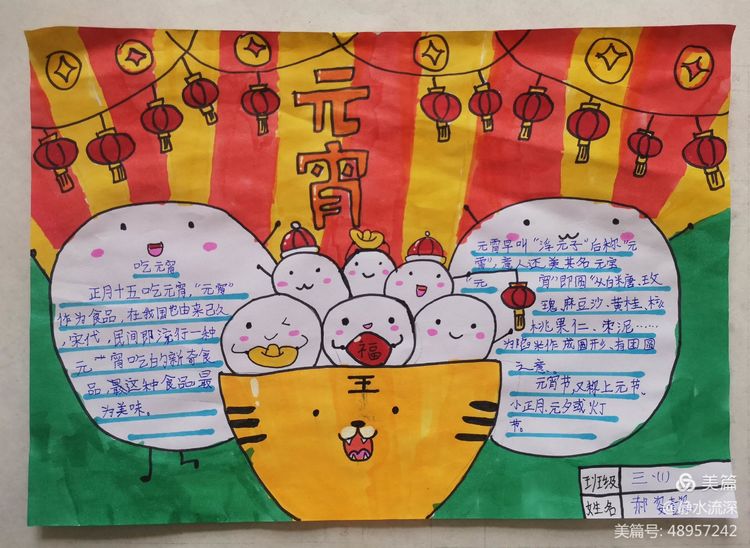 元宵
吃元宵
正月十五吃元宵,"元宵"
作为食品,在我国也由来已久
,宋代,民间即流行一种
元宵吃的新奇食
品,最这种食品,最
为美味。
元宵早叫"浮元子"后称"元
宵",意人还美其名元宝
"元宵"即团"从白糖、玫
瑰、麻豆沙、黄桂、
桃果仁、枣泥……
为馅米作成圆形,有团圆
之意。
元宵节,又称上元节,
小正月、元夕或灯
节。
福
王
班级 三、(1)
姓名 郝
美篇
@静水流深
美篇号: 48957242